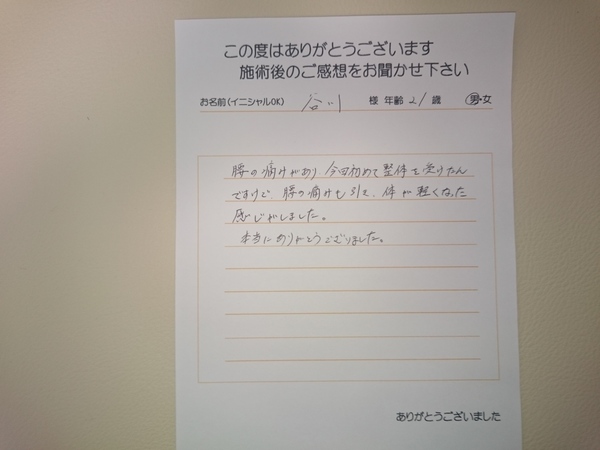 この度はありがとうございます
施術後のご感想をお聞かせ下さい
お名前(イニシャルOK) 谷川 様 年齢 21 歳 男・女
腰の痛みがあり 今回初めて整体を受けたん
ですけど、腰の痛みも引き、体が軽くなった
感じがしました。
本当にありがとうございました。
ありがとうございました